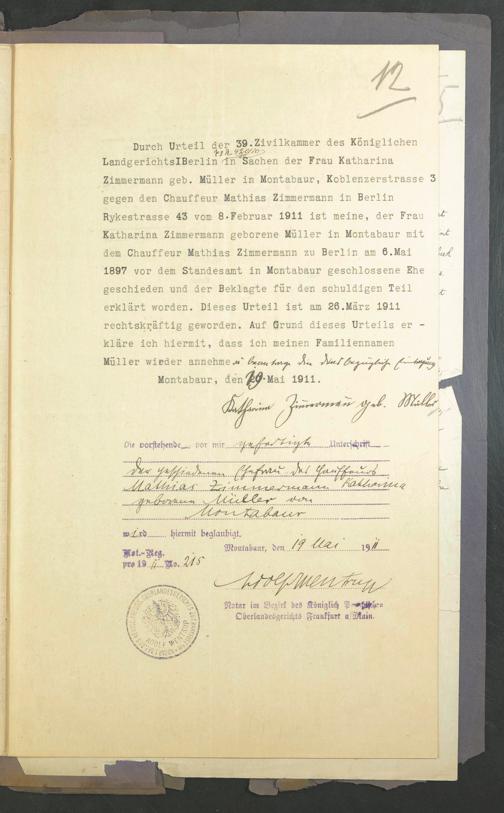 12
Durch Urteil der 39.Zivilkammer des Königlichen
LandgerichtsIBerlin in Sachen der Frau Katharina
Zimmermann geb. Müller in Montabaur, Koblenzerstrasse 3
gegen den Chauffeur Mathias Zimmermann in Berlin
Rykestrasse 43 vom 8.Februar 1911 ist meine, der Frau
Katharina Zimmermann geborene Müller in Montabaur mit
dem Chauffeur Mathias Zimmermann zu Berlin am 6.Mai
1897 vor dem Standesamt in Montabaur geschlossene Ehe
geschieden und der Beklagte für den schuldigen Teil
erklärt worden. Dieses Urteil ist am 26.März 1911
rechtskräftig geworden. Auf Grund dieses Urteils er -
kläre ich hiermit, dass ich meinen Familiennamen
Müller wieder annehme u. beantrage die diesbezügliche Eintragung
Montabaur, den 19.Mai 1911.
Katharina Zimmermann geb. Müller
Die vorstehende vor mir gefertigte Unterschrift
der geschiedenen Ehefrau des Chauffeurs
Mathias Zimmermann Katharina
geborene Müller von
Montabaur
wird hiermit beglaubigt.
Montabaur, den 19 Mai 1911
Not.-Reg.
pro 1911 No. 215
Adolf Wentrup
Notar im Bezirk des Königlich Preußischen
Oberlandesgerichts Frankfurt a/Main.
ADOLF WENTRUP